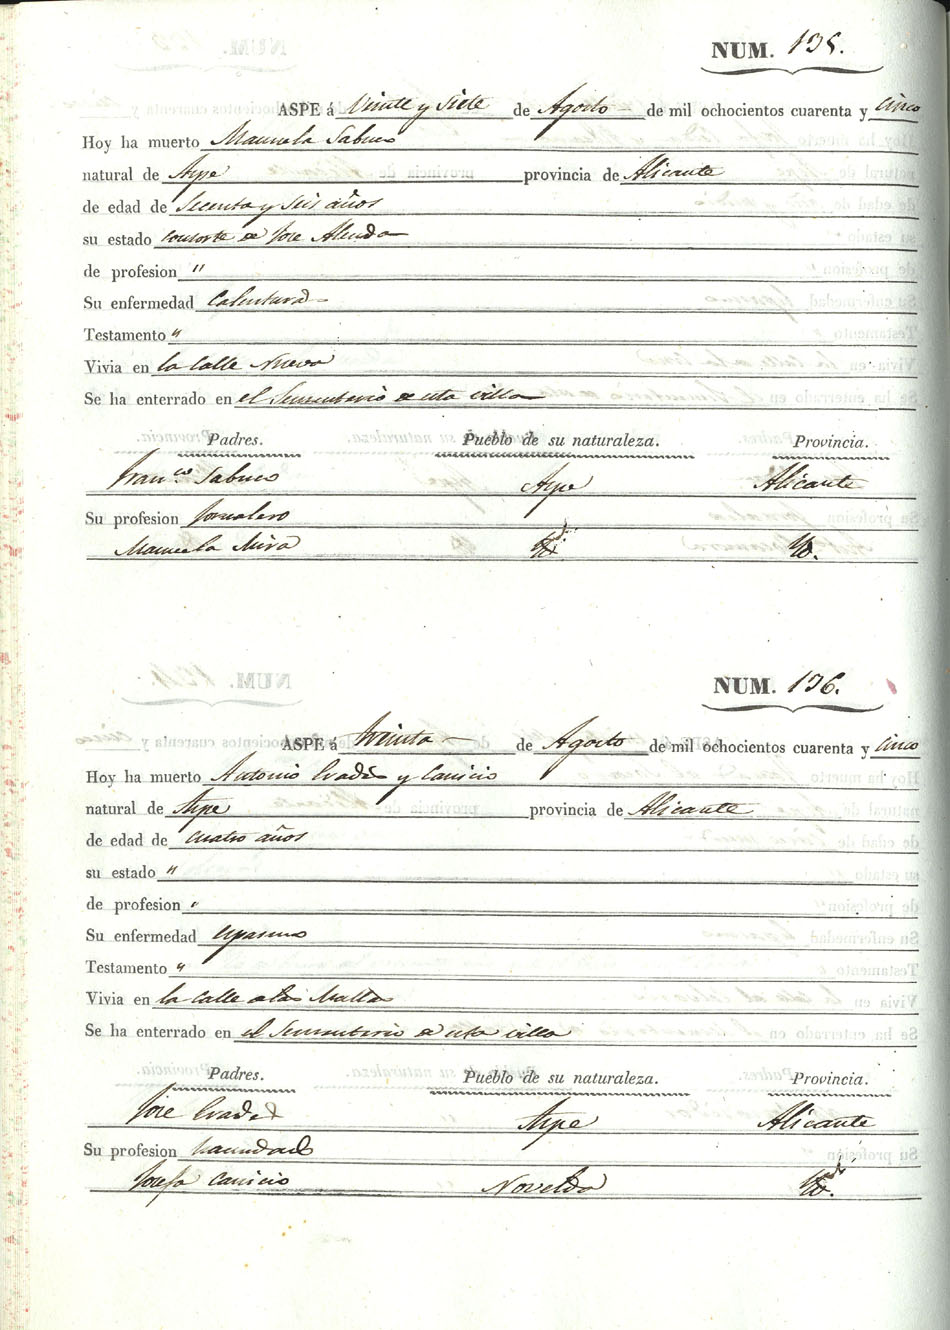 NUM. 135.
ASPE á Veinte y Siete de Agosto de mil ochocientos cuarenta y cinco
Hoy ha muerto Manuela Sabuco
natural de Aspe provincia de Alicante
de edad de Secenta y Seis años
su estado consorte de Jose Alenda
de profesion "
Su enfermedad Calentura
Testamento "
Vivia en la Calle Nueva
Se ha enterrado en el Sementerio de esta villa
Padres. Pueblo de su naturaleza. Provincia.
Franco. Sabuco Aspe Alicante
Su profesion Jornalero
Manuela Mira Yd. Yd.
NUM. 136.
ASPE á treinta de Agosto de mil ochocientos cuarenta y cinco
Hoy ha muerto Antonio Cradés y Canicio
natural de Aspe provincia de Alicante
de edad de cuatro años
su estado "
de profesion "
Su enfermedad espasmo
Testamento "
Vivia en la Calle de las Maltas
Se ha enterrado en el Sementerio de esta villa
Padres. Pueblo de su naturaleza. Provincia.
Jose Aspe Alicante
Su profesion
Josefa Canicio Novelda Yd.